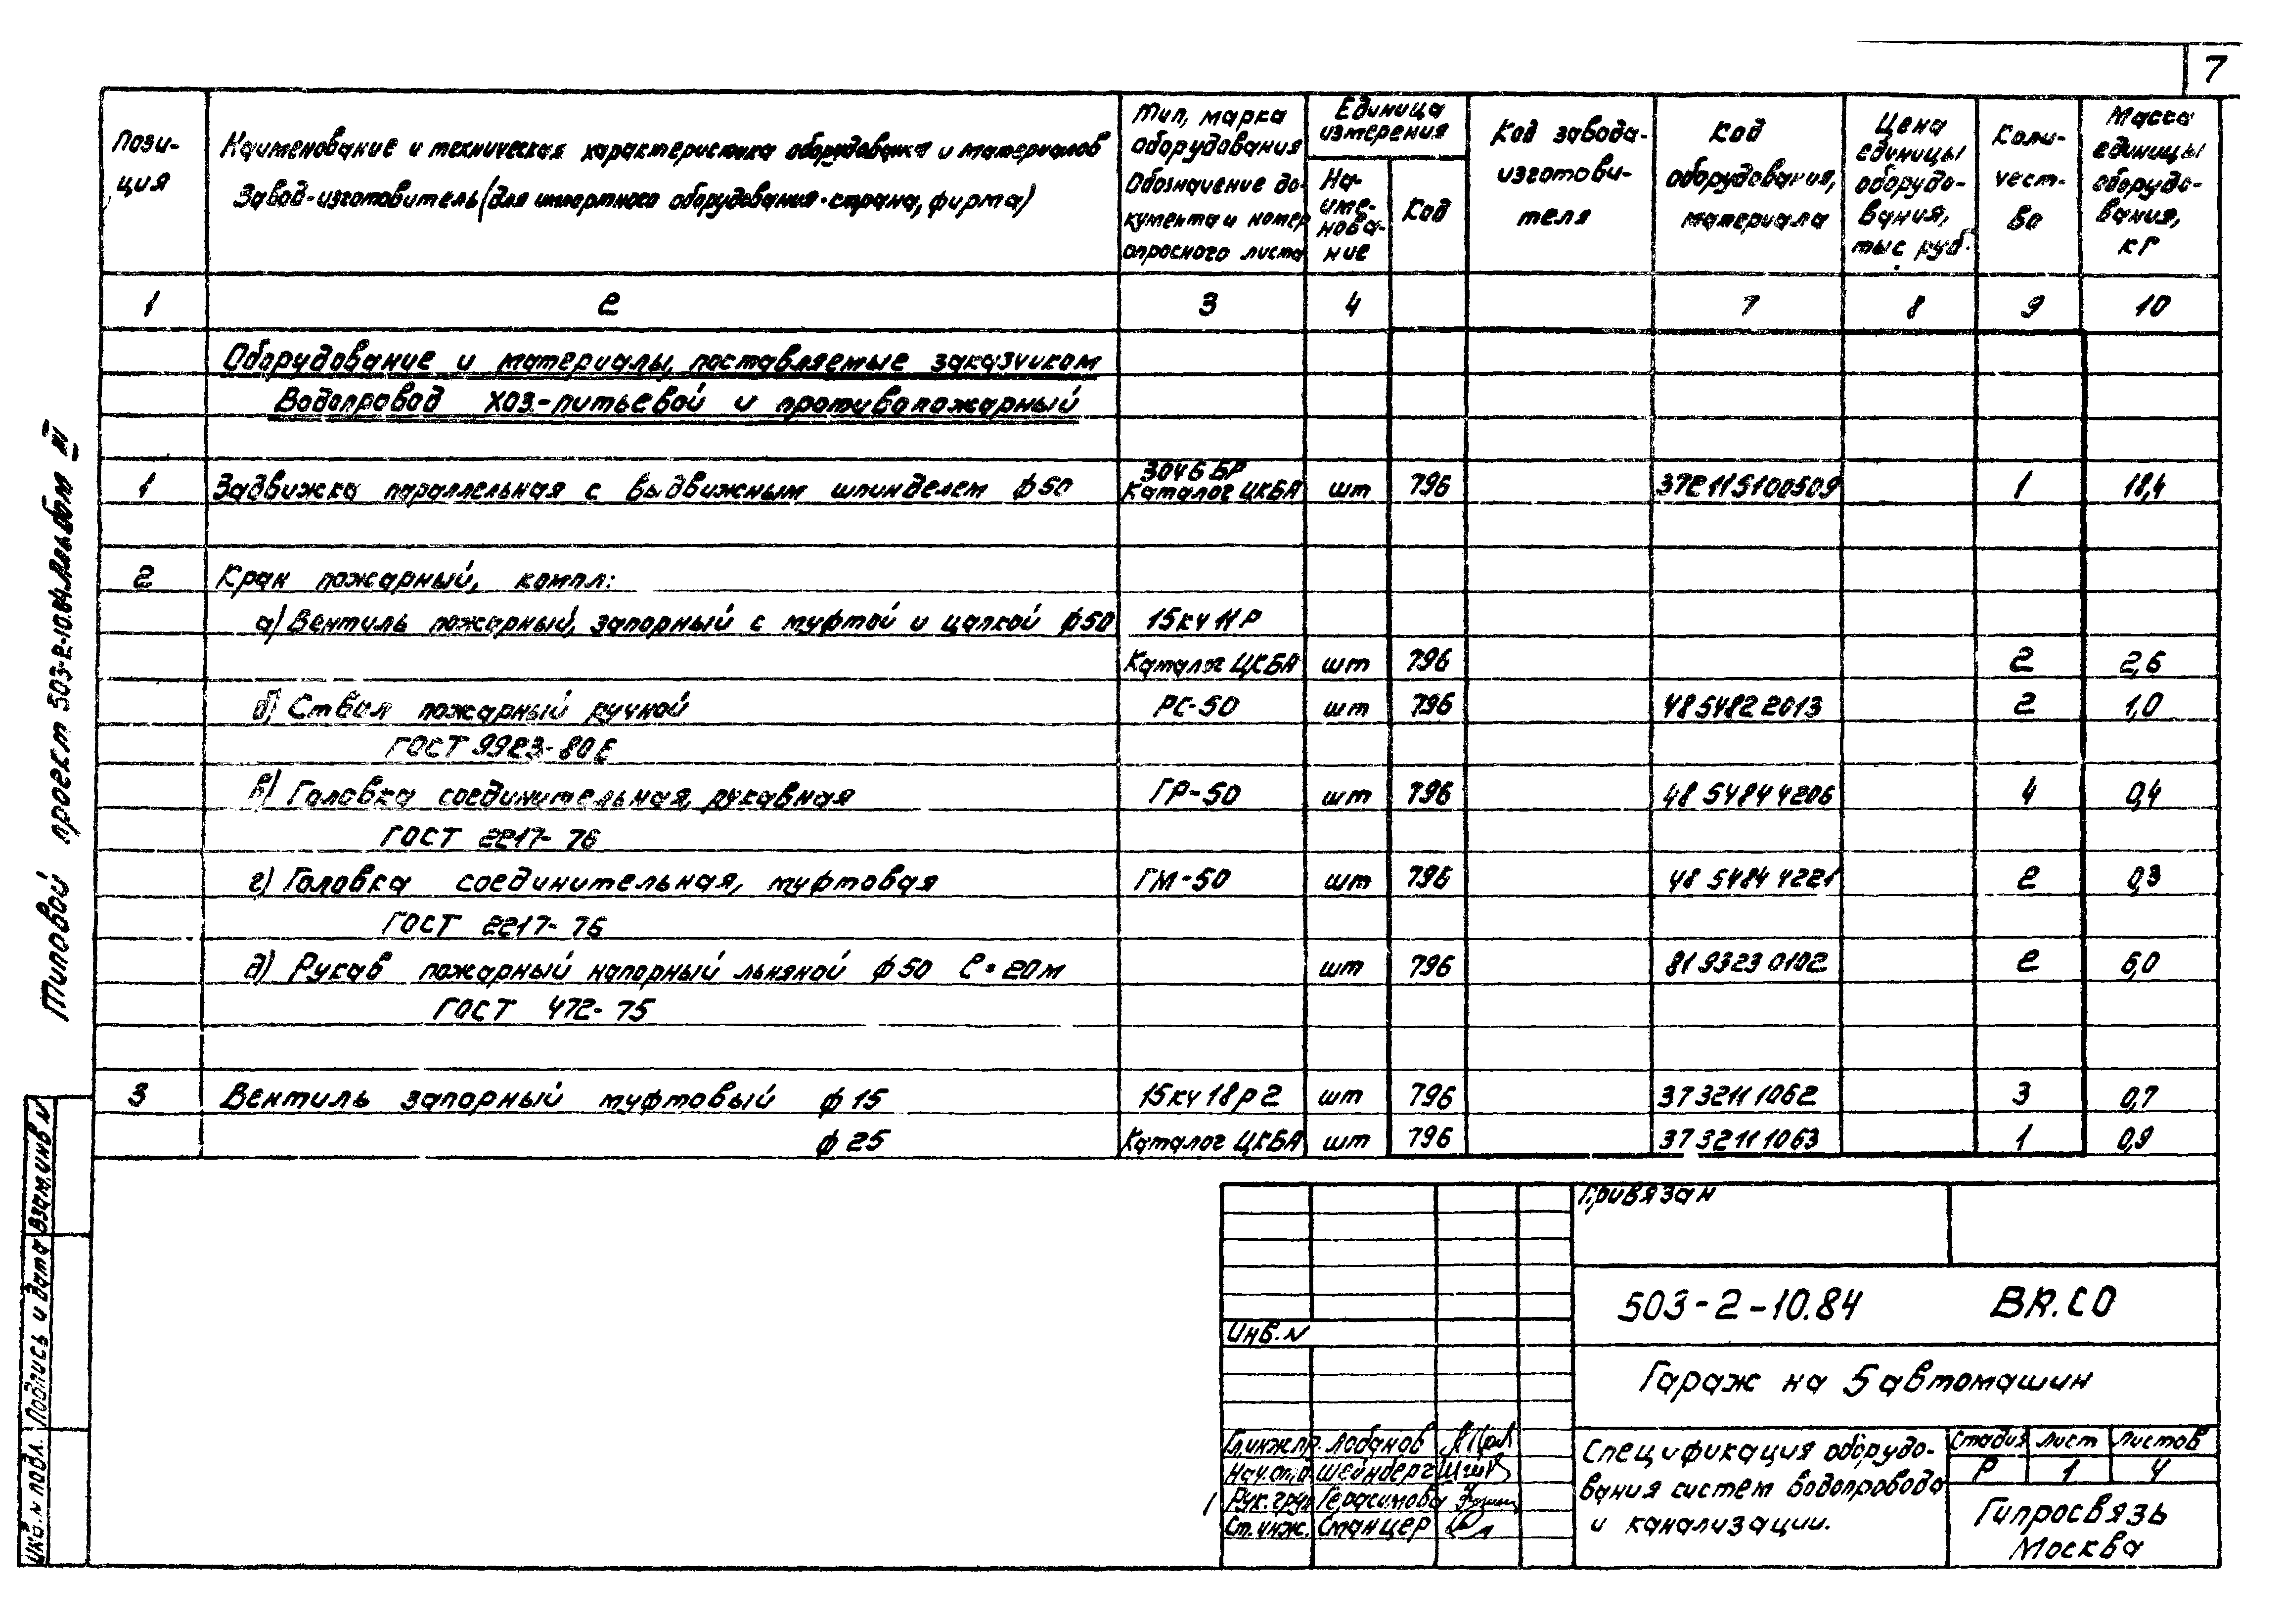 7
Пози-
ция
Наименование и техническая характеристика оборудования и материалов
Завод-изготовитель (для импортного оборудования-страна, фирма)
Тип, марка
оборудования
Обозначение до-
кумента и номер
опросного листа
Единица
измерения
На-
име-
нова-
ние
Код
Код завода-
изготови-
теля
Код
оборудования,
материала
Цена
единицы
оборудо-
вания,
тыс руб.
Коли-
чест-
во
Масса
единицы
оборудо-
вания,
кг
1 2 3 4 7 8 9 10
Оборудование и материалы, поставляемые заказчиком
Водопровод хоз.-питьевой и противопожарный
30ч6БР
1 Задвижка параллельная с выдвижным шпинделем ф50 Каталог ЦКБА шт 796 372115100509 1 18,4
2 Кран пожарный, компл:
а) Вентиль пожарный, запорный с муфтой и цапкой ф50 15кч11Р
Каталог ЦКБА шт 796 2 2,6
б) Ствол пожарный ручной РС-50 шт 796 48 5482 2013 2 1,0
ГОСТ 9923-80Е
в) Головка соединительная, рукавная ГР-50 шт 796 48 5484 4206 4 0,4
ГОСТ 2217-76
г) Головка соединительная, муфтовая ГМ-50 шт 796 48 5484 4221 2 0,3
ГОСТ 2217-76
д) Рукав пожарный напорный льняной ф50 ℓ=20м шт 796 81 9323 0102 2 6,0
ГОСТ 472-75
3 Вентиль запорный муфтовый ф15 15кч18р2 шт 796 37 3211 1062 3 0,7
ф25 Каталог ЦКБА шт 796 37 3211 1063 1 0,9
Типовой проект 503-2-10.84 Альбом III
Взам.инв N
Подпись и дата
Инв.N подл.
Привязан
Инв.N
503-2-10.84 ВК.СО
Гараж на 5 автомашин
Гл.инж.пр. Лобанов
Нач.отд. Шейнберг
Рук.груп Герасимова
Ст.инж. Станцер
Спецификация оборудо-
вания систем водопровода
и канализации.
Стадия Лист Листов
Р 1 4
Гипросвязь
Москва